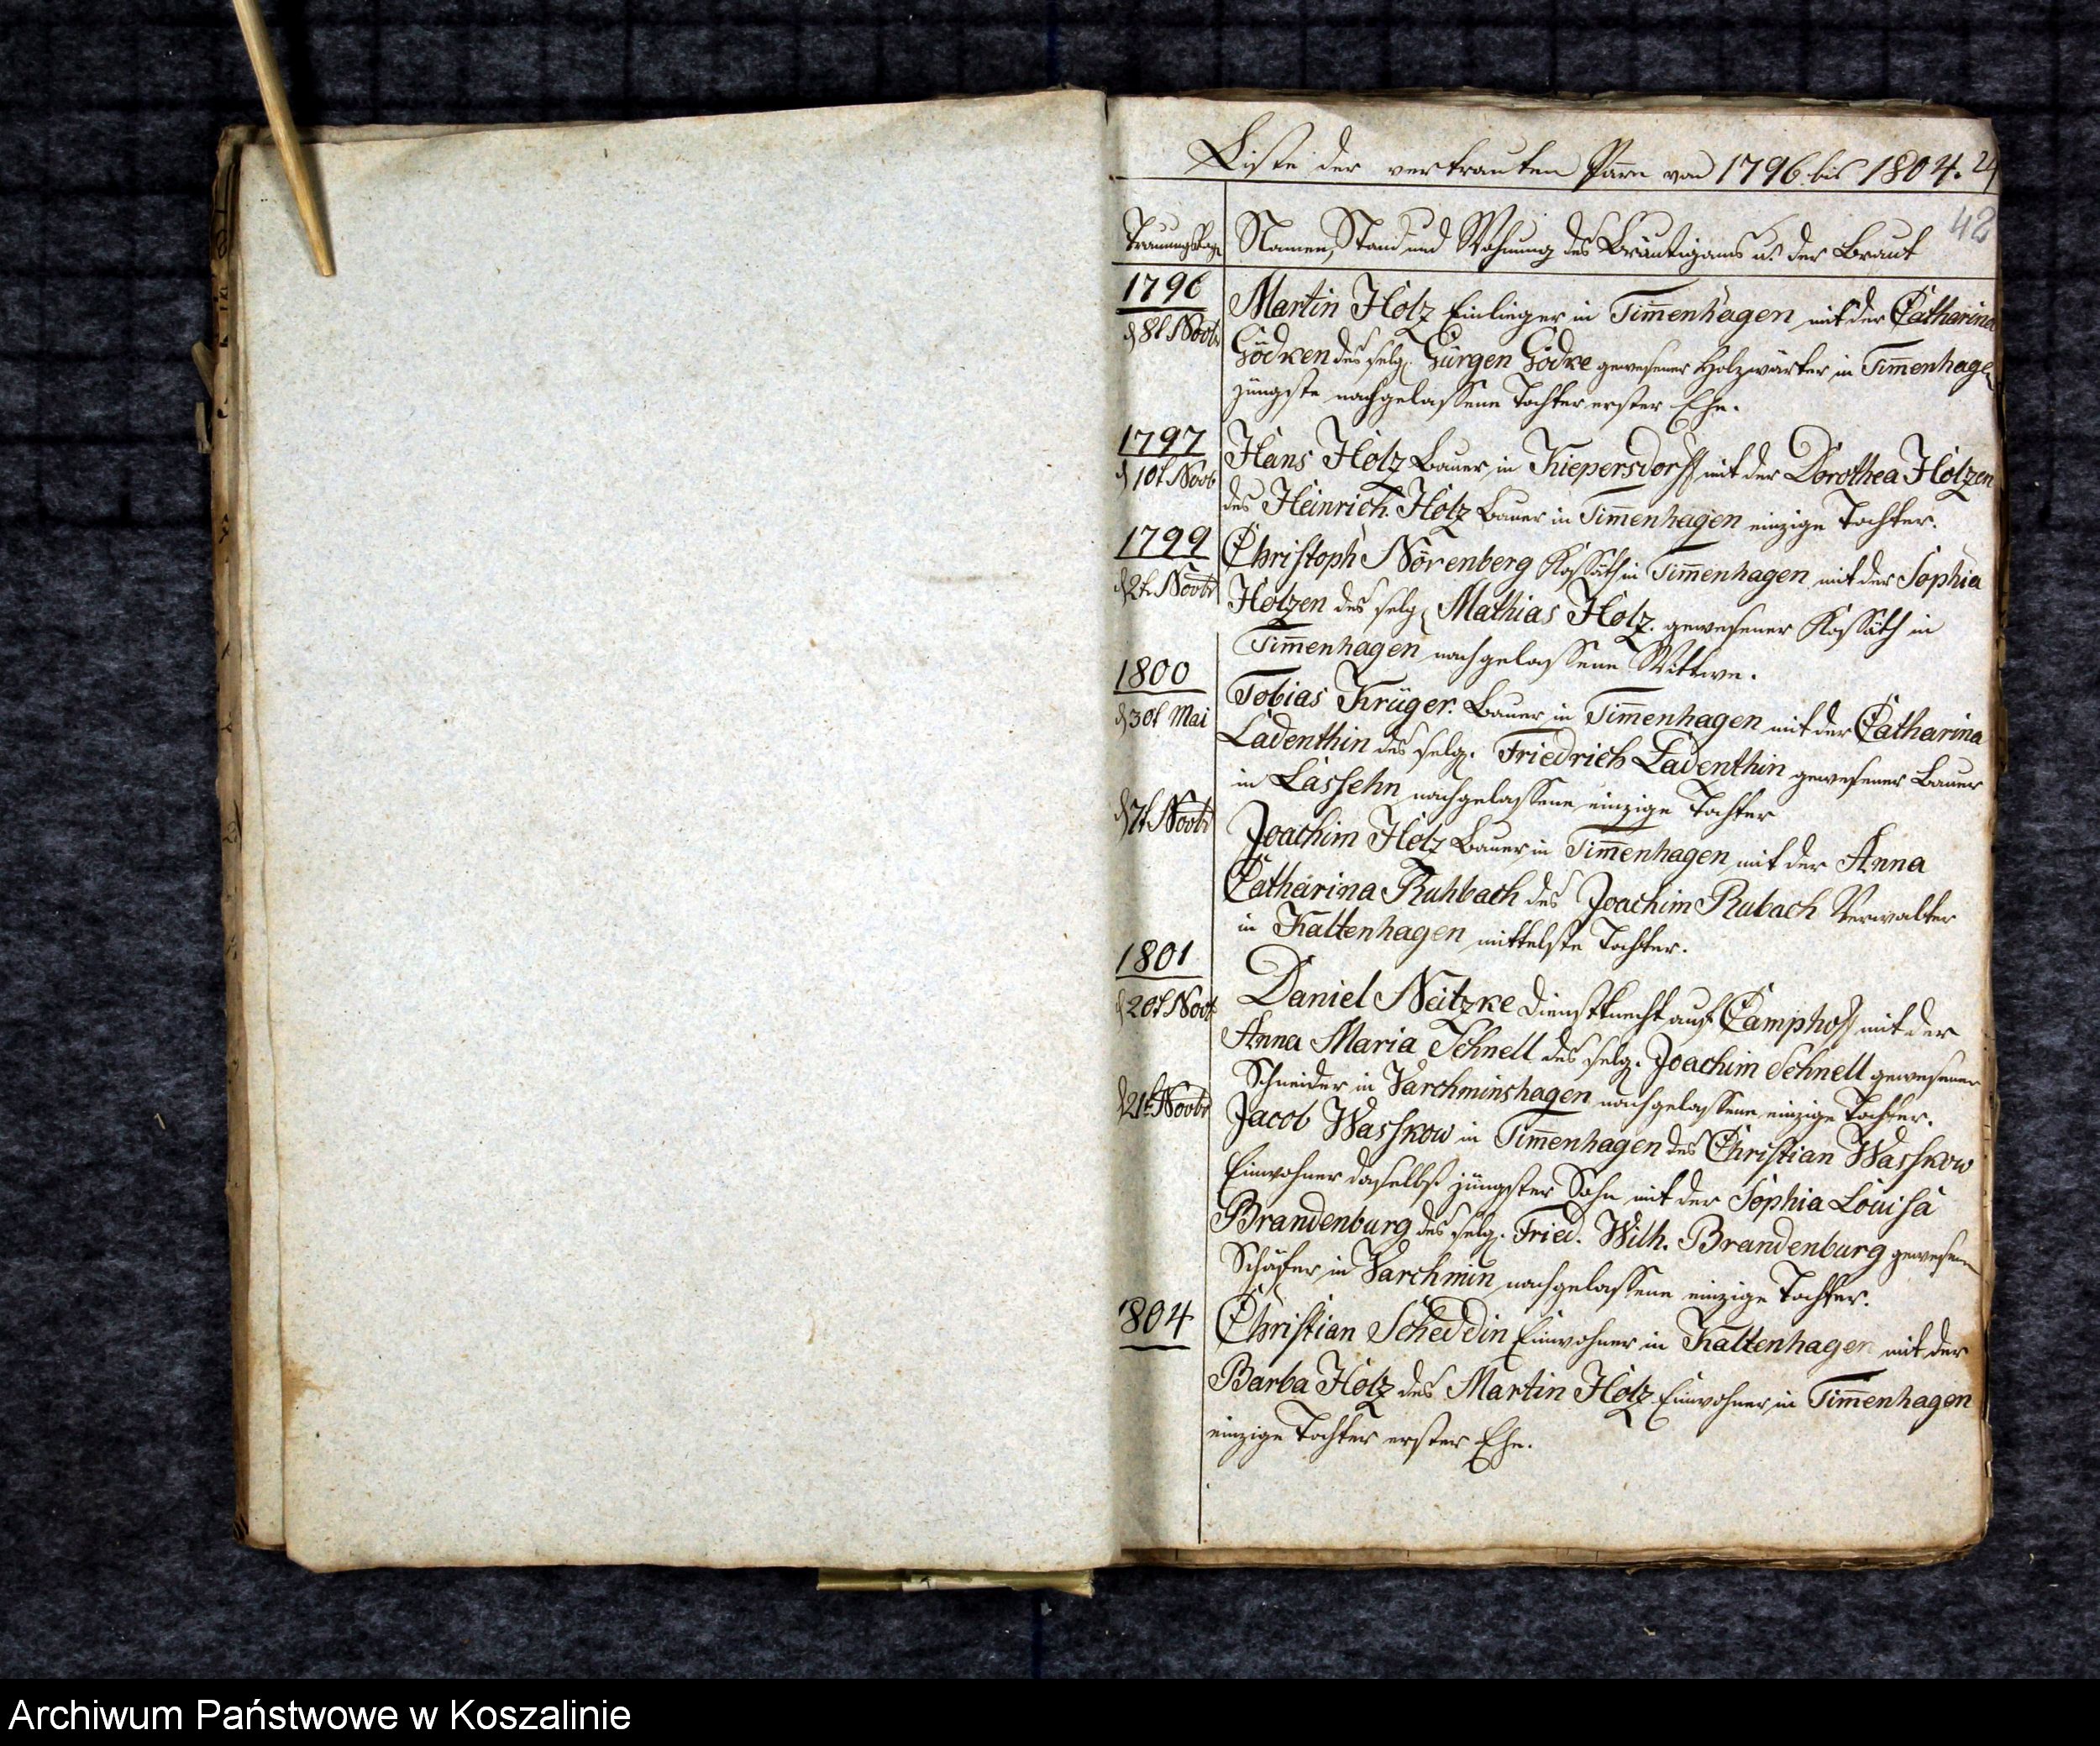 Liste der vertrauten Paare von 1796 bis 1804.
42
Trauungstag
Namen, Stand und Wohnung des Bräutigams u. der Braut
1796
d 8t Novbr
Martin Holz Einlieger in Tim̅enhagen mit der Catharina
Gödken des selg. Gürgen Gödke gewesener Holzwärter in Tim̅enhagen
jüngste nachgelassene Tochter erster Ehe.
1797
d 10t Novb
Hans Holz Bauer in Kiepersdorff mit der Dorothea Holzen
des Heinrich Holz Bauer in Tim̅enhagen einzige Tochter.
1799
d 2t Novbr
Christoph Nörenberg Kossäth in Tim̅enhagen mit der Sophia
Holzen des selg. Mathias Holz. gewesener Kossäth in
Tim̅enhagen nachgelassene Wittwe.
1800
d 30t Mai
Tobias Krüger. Bauer in Tim̅enhagen mit der Catharina
Ladenthin des selg. Friedrich Ladenthin gewesener Bauer
in Lassehn nachgelassene einzige Tochter
d 7t Novbr
Joachim Holz Bauer in Tim̅enhagen mit der Anna
Catharina Ruhbach des Joachim Rubach Verwalter
in Kaltenhagen mittelste Tochter.
1801
d 20t Novbr
Daniel Neitzke Dienstknecht auf Camphoff mit der
Anna Maria Schnell des selg. Joachim Schnell gewesener
Schneider in Varchminshagen nachgelassene einzige Tochter.
d 21t Novbr
Jacob Wasskow in Tim̅enhagen des Christian Wasskow
Einwohner daselbst jüngster Sohn mit der Sophia Louisa
Brandenburg des selg. Fried. Wilh. Brandenburg gewesener
Schäfer in Varchmin nachgelassene einzige Tochter.
1804
Christian Scheddin Einwohner in Kaltenhagen mit der
Barba Holz des Martin Holz Einwohner in Tim̅enhagen
einzige Tochter erster Ehe.
Archiwum Państwowe w Koszalinie